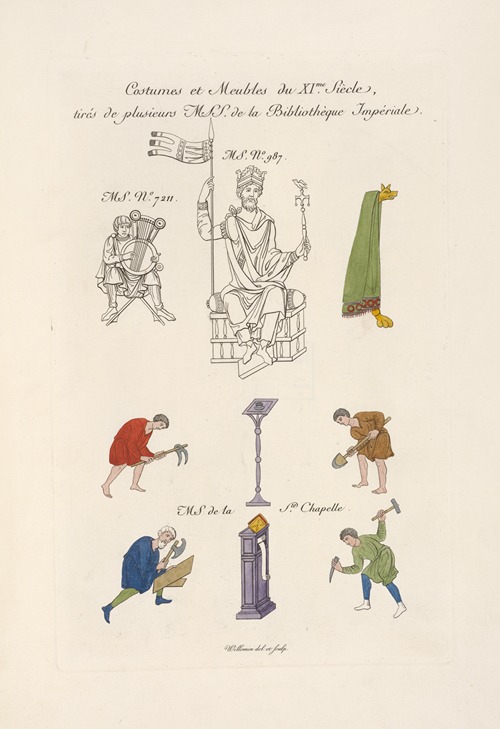 Costumes et Meubles du XI.me Siècle,
tirés de plusieurs MSS. de la Bibliothèque Impériale.
MS. N.o 987.
MS. N.o 7211.
MS. de la S.te Chapelle.
Willemin del. et sculp.